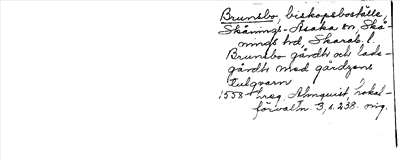 Brunsbo, biskopsboställe,
Skånings-Åsaka sn, Skå-
nings hd, Skarab. l.
Brunsbo gårdh och lade-
gårdh med gårdzens
tilgvarn
1558 hreg. Almquist, Lokal-
förvaltn. 3, s. 238. orig.